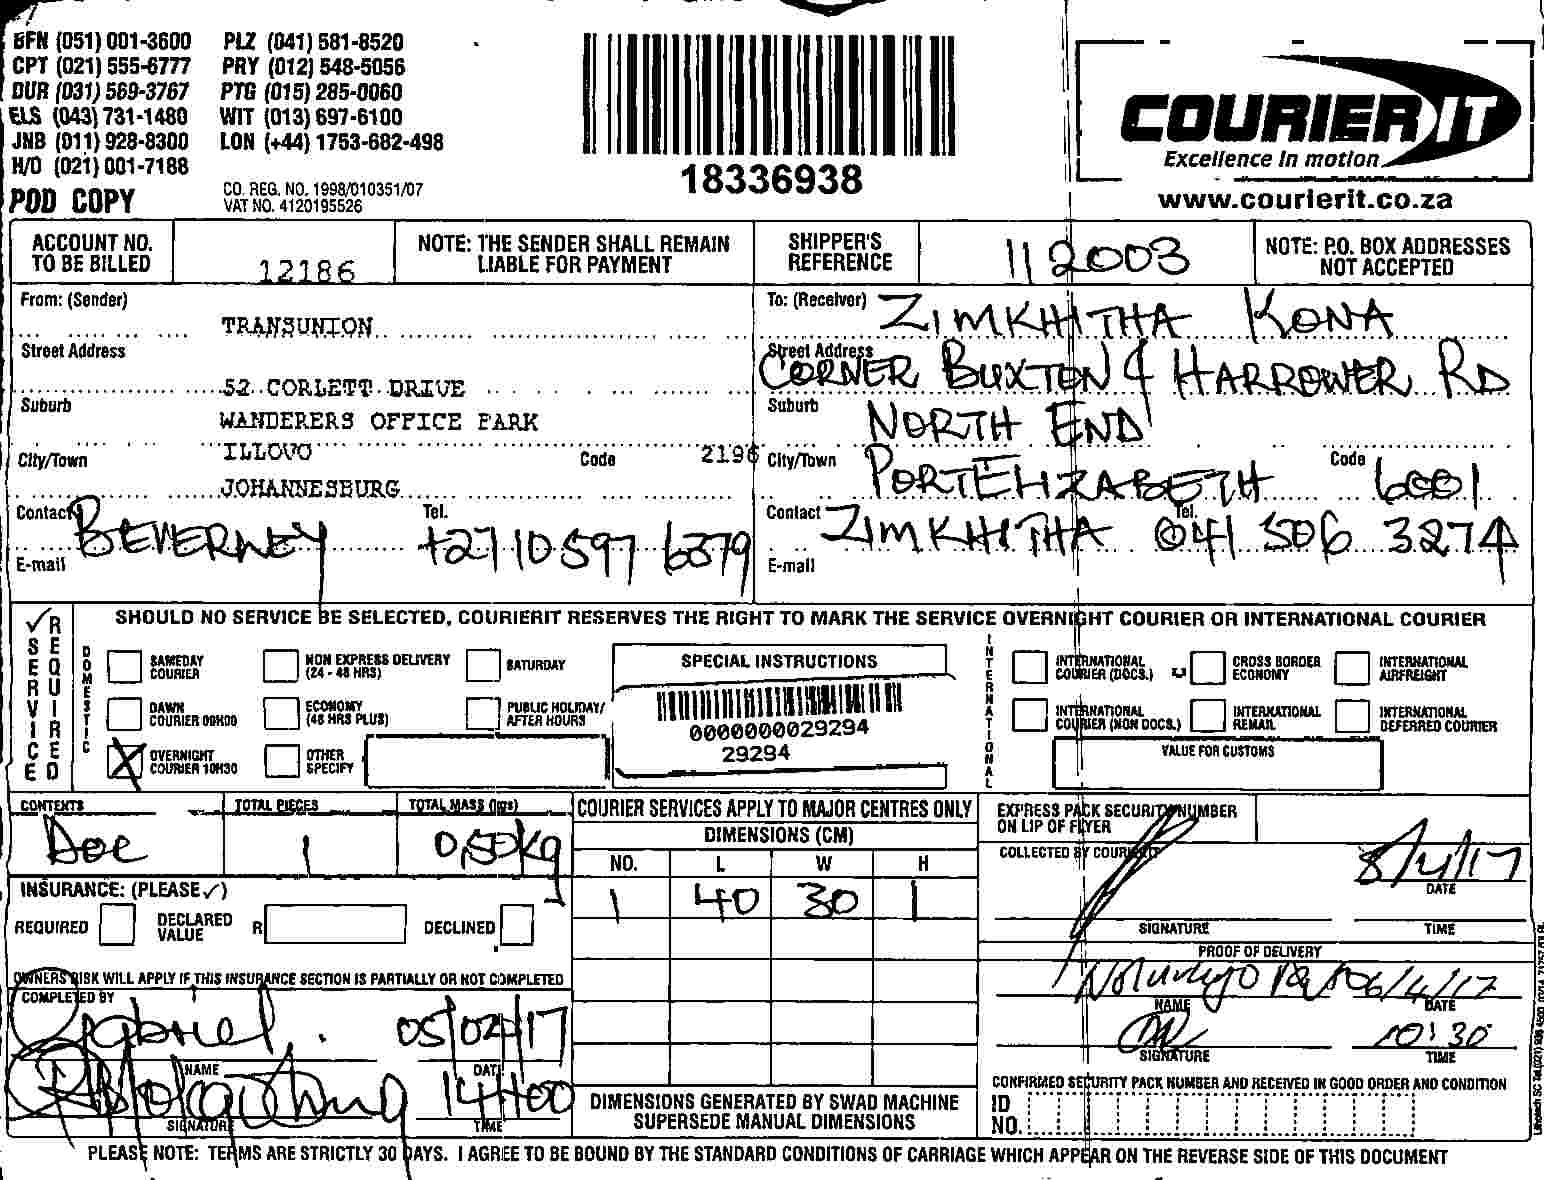 BFN (051) 001-3600 PLZ (041) 581-8520
CPT (021) 555-6777 PRY (012) 548-5056
DUR (031) 569-3767 PTG (015) 285-0060
ELS (043) 731-1480 WIT (013) 697-6100
JNB (011) 928-8300 LON (+44) 1753-682-498
H/O (021) 001-7188
POD COPY
CO. REG. NO. 1998/010351/07
VAT NO. 4120195526
18336938
COURIER IT
Excellence in motion
www.courierit.co.za
ACCOUNT NO. TO BE BILLED 12186
NOTE: THE SENDER SHALL REMAIN LIABLE FOR PAYMENT
SHIPPER'S REFERENCE 112003
NOTE: P.O. BOX ADDRESSES NOT ACCEPTED
From: (Sender) TRANSUNION
Street Address 52 CORLETT DRIVE
Suburb WANDERERS OFFICE PARK
ILLOVO
City/Town JOHANNESBURG Code 2196
Contact BEVERNEY Tel. +27 10 597 6379
E-mail
To: (Receiver) ZIMKHITHA KONA
Street Address CORNER BUXTON & HARROWER RD
Suburb NORTH END
City/Town PORT ELIZABETH Code 6001
Contact ZIMKHITHA Tel. 041 506 3274
E-mail
SERVICE REQUIRED
SHOULD NO SERVICE BE SELECTED, COURIERIT RESERVES THE RIGHT TO MARK THE SERVICE OVERNIGHT COURIER OR INTERNATIONAL COURIER
DOMESTIC
SAMEDAY COURIER
NON EXPRESS DELIVERY (24 - 48 HRS)
SATURDAY
DAWN COURIER 09H00
ECONOMY (48 HRS PLUS)
PUBLIC HOLIDAY/ AFTER HOURS
OVERNIGHT COURIER 10H30
OTHER SPECIFY
SPECIAL INSTRUCTIONS
0000000029294
29294
INTERNATIONAL
INTERNATIONAL COURIER (DOCS.)
CROSS BORDER ECONOMY
INTERNATIONAL AIRFREIGHT
INTERNATIONAL COURIER (NON DOCS.)
INTERNATIONAL REMAIL
INTERNATIONAL DEFERRED COURIER
VALUE FOR CUSTOMS
CONTENTS Doc
TOTAL PIECES 1
TOTAL MASS (kgs) 0,50kg
COURIER SERVICES APPLY TO MAJOR CENTRES ONLY
DIMENSIONS (CM)
NO. L W H
1 40 30 1
DIMENSIONS GENERATED BY SWAD MACHINE SUPERSEDE MANUAL DIMENSIONS
INSURANCE: (PLEASE ✓)
REQUIRED DECLARED VALUE R DECLINED
OWNERS RISK WILL APPLY IF THIS INSURANCE SECTION IS PARTIALLY OR NOT COMPLETED
COMPLETED BY
Gabriel 05/04/17
NAME DATE
14H00
SIGNATURE TIME
EXPRESS PACK SECURITY NUMBER ON LIP OF FLYER
COLLECTED BY COURIERIT
DATE
SIGNATURE TIME
PROOF OF DELIVERY
06/4/17
NAME DATE
10:30
SIGNATURE TIME
CONFIRMED SECURITY PACK NUMBER AND RECEIVED IN GOOD ORDER AND CONDITION
ID NO.
PLEASE NOTE: TERMS ARE STRICTLY 30 DAYS. I AGREE TO BE BOUND BY THE STANDARD CONDITIONS OF CARRIAGE WHICH APPEAR ON THE REVERSE SIDE OF THIS DOCUMENT